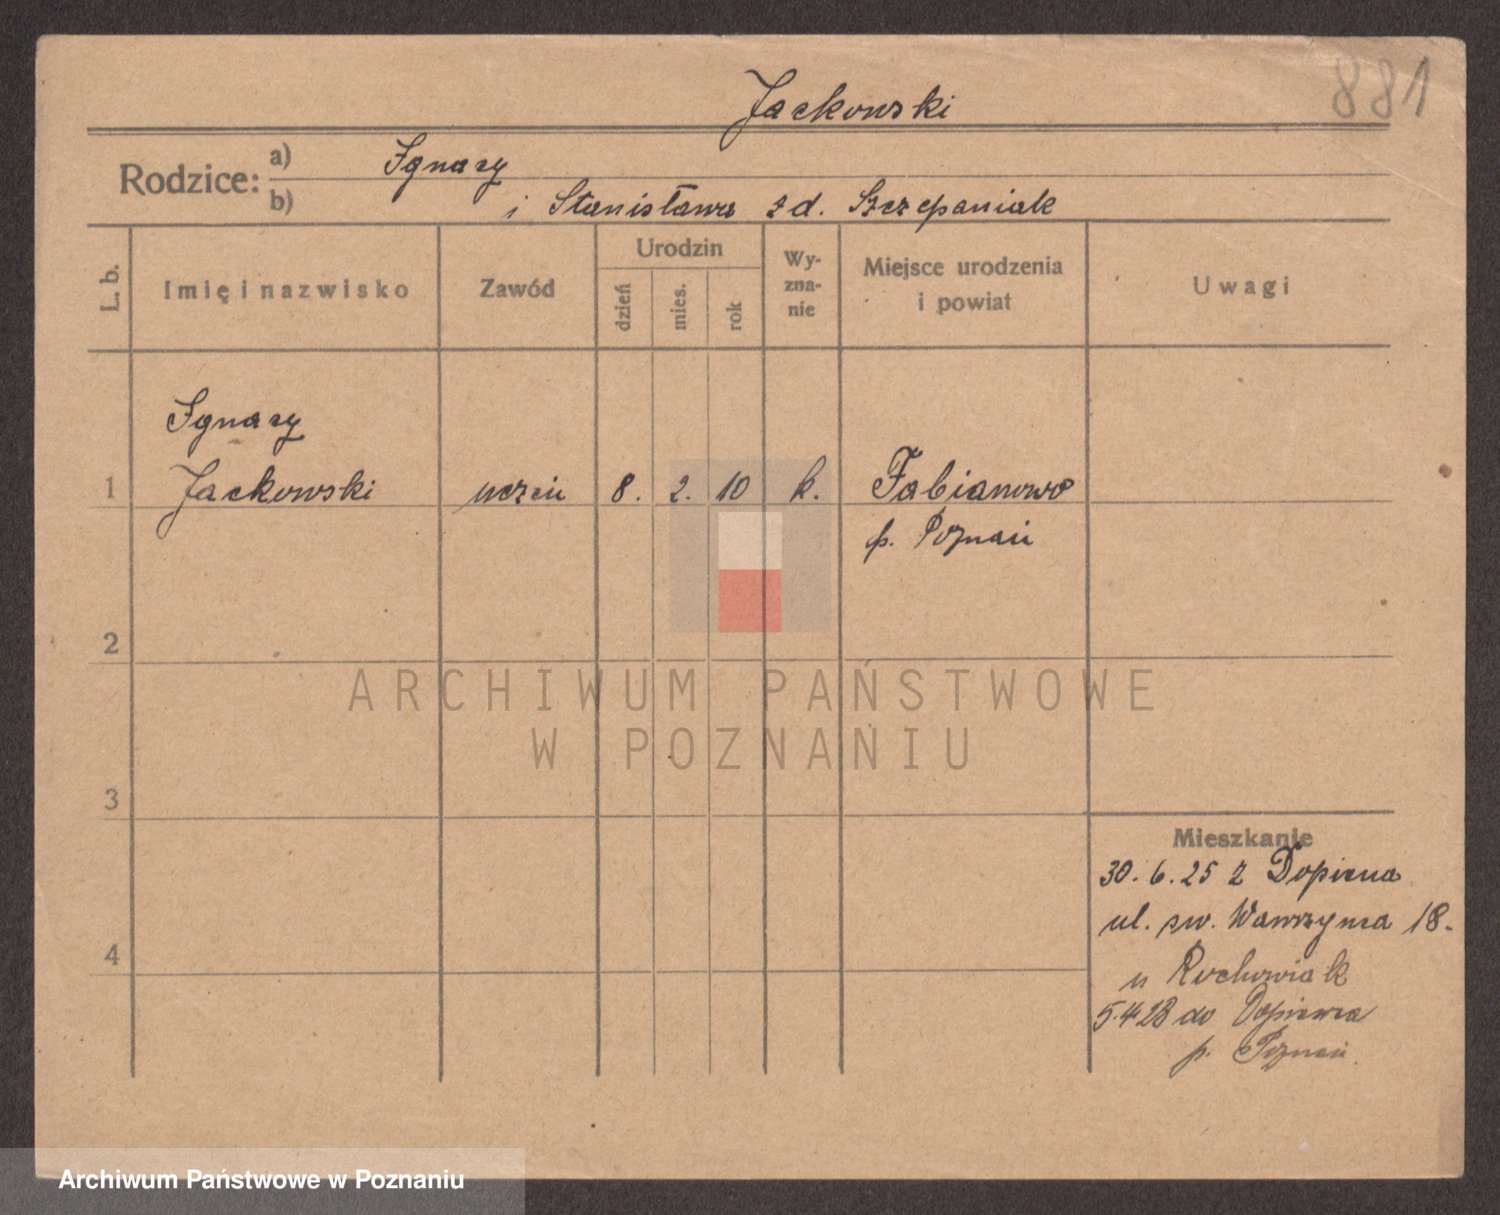 881
Jackowski
Rodzice: a) Ignacy
b) i Stanisława z d. Szczepaniak
L. b.
Imię i nazwisko
Zawód
Urodzin
dzień
mies.
rok
Wy-
zna-
nie
Miejsce urodzenia
i powiat
Uwagi
Ignacy
1 Jackowski uczeń 8. 2. 10 k. Fabianowo
p. Poznań
2
ARCHIWUM PAŃSTWOWE
W POZNANIU
3
Mieszkanie
30. 6. 25 z Dopiewa
ul. św. Wawrzyńca 18.
4
u Rochowiak
5.4 28 do Dopiewca
p. Poznań
Archiwum Państwowe w Poznaniu